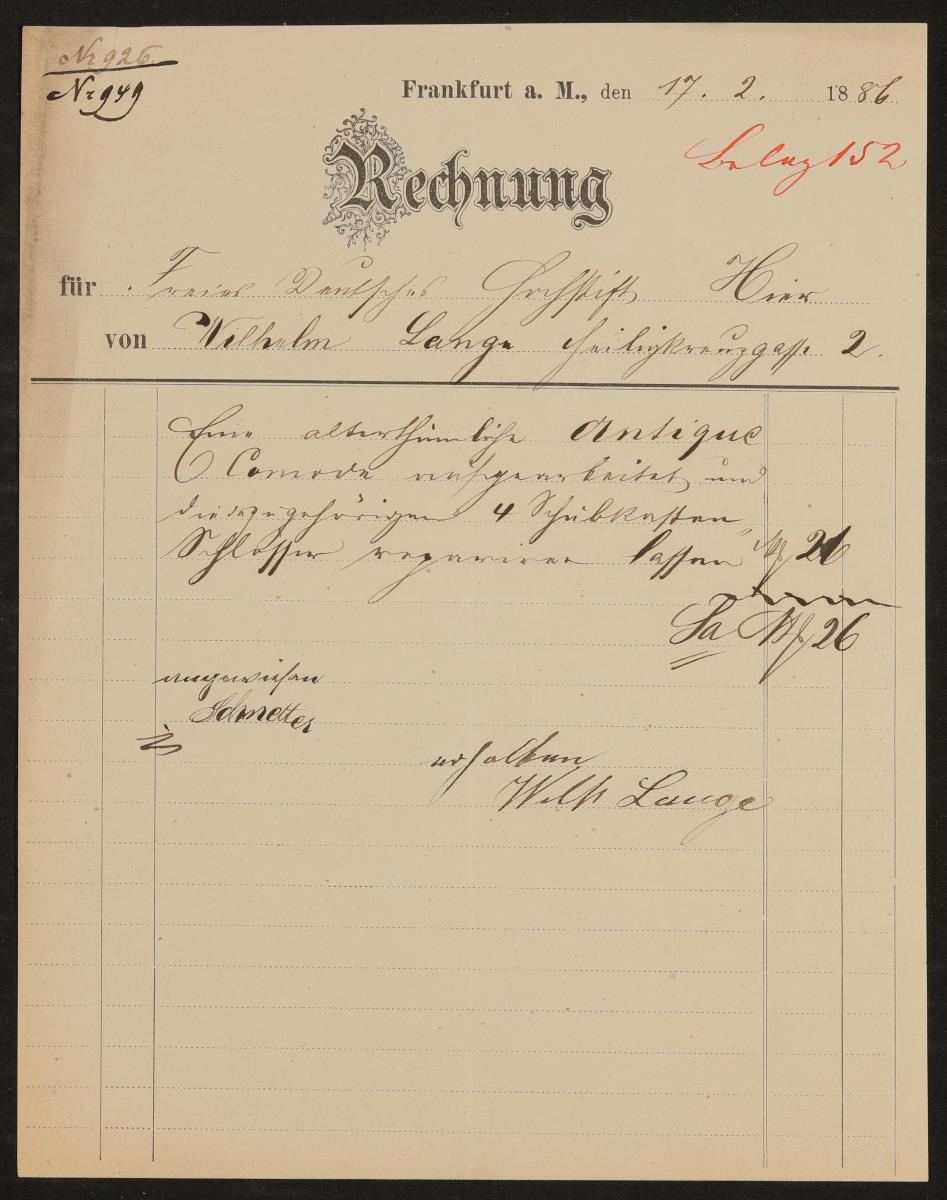 Nr 926
Nr 949
Frankfurt a. M., den 17. 2. 1886
Belag 152
Rechnung
für Freies Deutsches Hochstift Hier
von Wilhelm Lange Heiligkreuzgasse 2.
Eine alterthümliche Antique
Comode aufgearbeitet und
die dazugehörigen 4 Schubkasten
Schlösser repariren lassen M 26
Sa M 26
angewiesen
erhalten
Wilh Lange